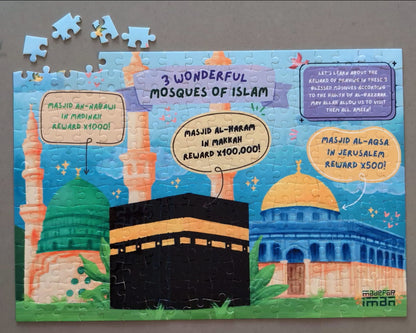 3 WONDERFUL
MOSQUES OF ISLAM
LET'S LEARN ABOUT THE
REWARD OF PRAYING IN THESE 3
BLESSED MOSQUES ACCORDING
TO THE HADITH OF AL-BAZZAAR.
MAY ALLAH ALLOW US TO VISIT
THEM ALL, AMEEN!
MASJID AN-NABAWI
IN MADINAH
REWARD X1000!
MASJID AL-HARAM
IN MAKKAH
REWARD X100,000!
MASJID AL-AQSA
IN JERUSALEM
REWARD X500!
iman